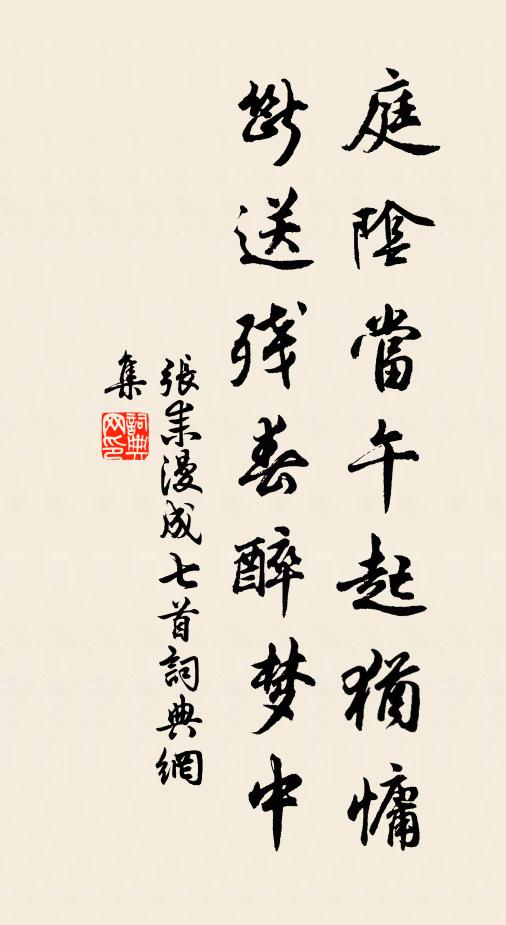 庭陰當午起猶慵
断送残春醉梦中
張耒漫成七首詞典網
集
詞典网印